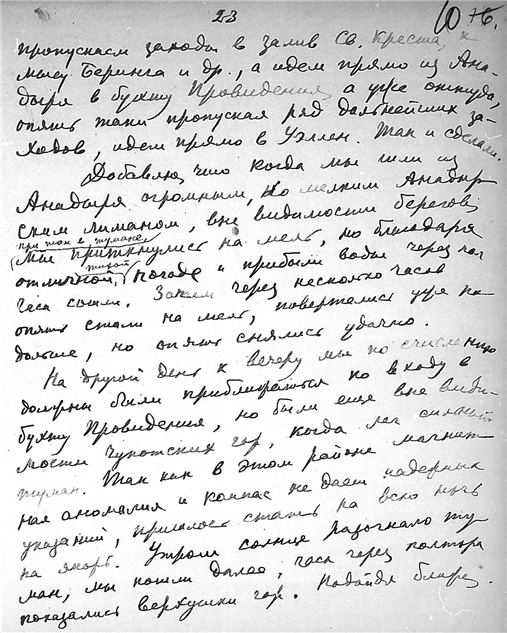 23
пропускаем заходы в залив Св. Креста, к
мысу Беринга и др., а идем прямо из Ана-
дыря в бухту Провидения, а уже оттуда,
опять таки пропуская ряд дальнейших за-
ходов, идем прямо в Уэллен. Так и сделали.
Добавляю, что когда мы шли из
Анадыря огромным, но мелким Анадыр-
ским лиманом, вне видимости берегов,
при том в тумане,
мы приткнулись на мель, но благодаря
тихой
отличной, погоде и прибыли воды через пол
часа сошли. Затем через несколько часов
опять стали на мель, повертелись уже по-
дольше, но опять снялись удачно.
На другой день к вечеру мы по счислению
должны были приблизиться ко входу в
бухту Провидения, но были еще вне види-
мости Чукотских гор, когда лег сильный
туман. Так как в этом районе магнит-
ная аномалия и компас не дает надежных
указаний, пришлось стать на всю ночь
на якорь. Утром солнце разогнало ту-
ман, мы пошли далее, часа через полтора
показались верхушки гор. Подойдя ближе,